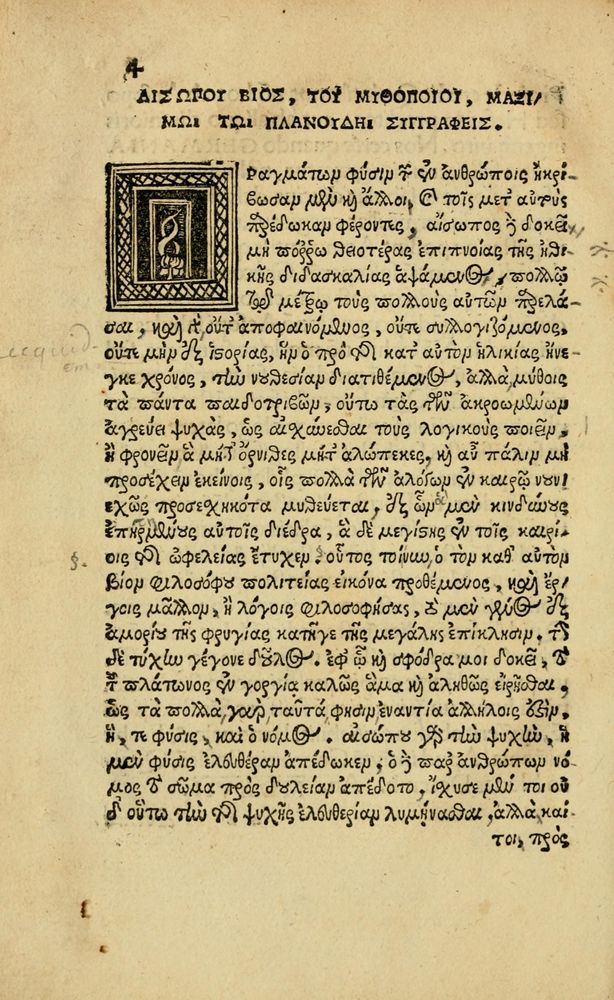 4
ΑΙΣΩΠΟΥ ΒΙΟΣ, ΤΟΥ ΜΥΘΟΠΟΙΟΥ, ΜΑΞΙ/
ΜΩΙ ΤΩΙ ΠΛΑΝΟΥΔΗΙ ΣΥΓΓΡΑΦΕΙΣ.
Πραγμάτων φύσιν τ̀ ἐν ἀνθρώποις ἠκρί
βωσαν μὲν κỳ ἄλλοι, & τοῖς μετ' αὐτοὺς
παρέδωκαν φέροντες, αἴσωπος δὲ δοκεῖ
μὴ πόῤῥω θειοτέρας ἐπιπνοίας τῆς ἠθι
κῆς διδασκαλίας ἁψάμενος, πολλῷ
τῷ μέτρῳ τοὺς πολλοὺς αὐτῶν παρελά
σαι, καὶ γὰρ οὔτ' ἀποφαινόμενος, οὔτε συλλογιζόμενος,
οὔτε μὴν ἐξ ἱστορίας, ἣν ὁ πρὸ τῆς κατ' αὐτὸν ἡλικίας ἤνε
γκε χρόνος, τὴν νουθεσίαν διατιθέμενος, ἀλλὰ μύθοις
τὰ πάντα παιδοτριβῶν, οὕτω τὰς τῶν ἀκροωμένων
ἀγρεύει ψυχὰς, ὡς αἰσχύνεσθαι τοὺς λογικοὺς ποιεῖν,
ἢ φρονεῖν ἃ μήτ' ὄρνιθες μήτ' ἀλώπεκες, κỳ αὖ πάλιν μὴ
προσέχειν ἐκείνοις, οἷς πολλὰ τῶν ἀλόγων ἐν καιρῷ νουν/
εχῶς προσεχηκότα μυθεύεται, ἐξ ὧν ἃ μὲν κινδύνους
ἐπηρμένους αὐτοῖς διέδρα, ἃ δὲ μεγίστης ἐν τοῖς καιρί/
οις τῆς ὠφελείας ἔτυχεν. οὗτος τοίνυν ὁ τὸν καθ' αὑτὸν
βίον φιλοσόφου πολιτείας εἰκόνα προθέμενος, καὶ ἔρ/
γοις μᾶλλον, ἢ λόγοις φιλοσοφήσας, τὸ μὲν γένος ἐξ
ἀμορίου τῆς φρυγίας κατῆγε τῆς μεγάλης ἐπίκλησιν. τὴν
δὲ τύχην γέγονε δοῦλος. ἐφ' ᾧ κỳ σφόδρα μοι δοκεῖ, τὸ
τοῦ πλάτωνος ἐν γοργίᾳ καλῶς ἅμα κỳ ἀληθῶς εἰρῆσθαι,
ὡς τὰ πολλὰ, γὰρ ταῦτά φησιν ἐναντία ἀλλήλοις ἐστὶν,
ἥ, τε φύσις, καὶ ὁ νόμος. αἰσώπου γὰρ τὴν ψυχὴν, ἡ
μὲν φύσις ἐλευθέραν ἀπέδωκεν, ὁ δὲ παρ' ἀνθρώπων νό/
μος τὸ σῶμα πρὸς δουλείαν ἀπέδοτο, ἴσχυσε μέν τοι οὐ
δ' οὕτω τὴν τῆς ψυχῆς ἐλευθερίαν λυμήνασθαι, ἀλλὰ καί
τοι, πρὸς